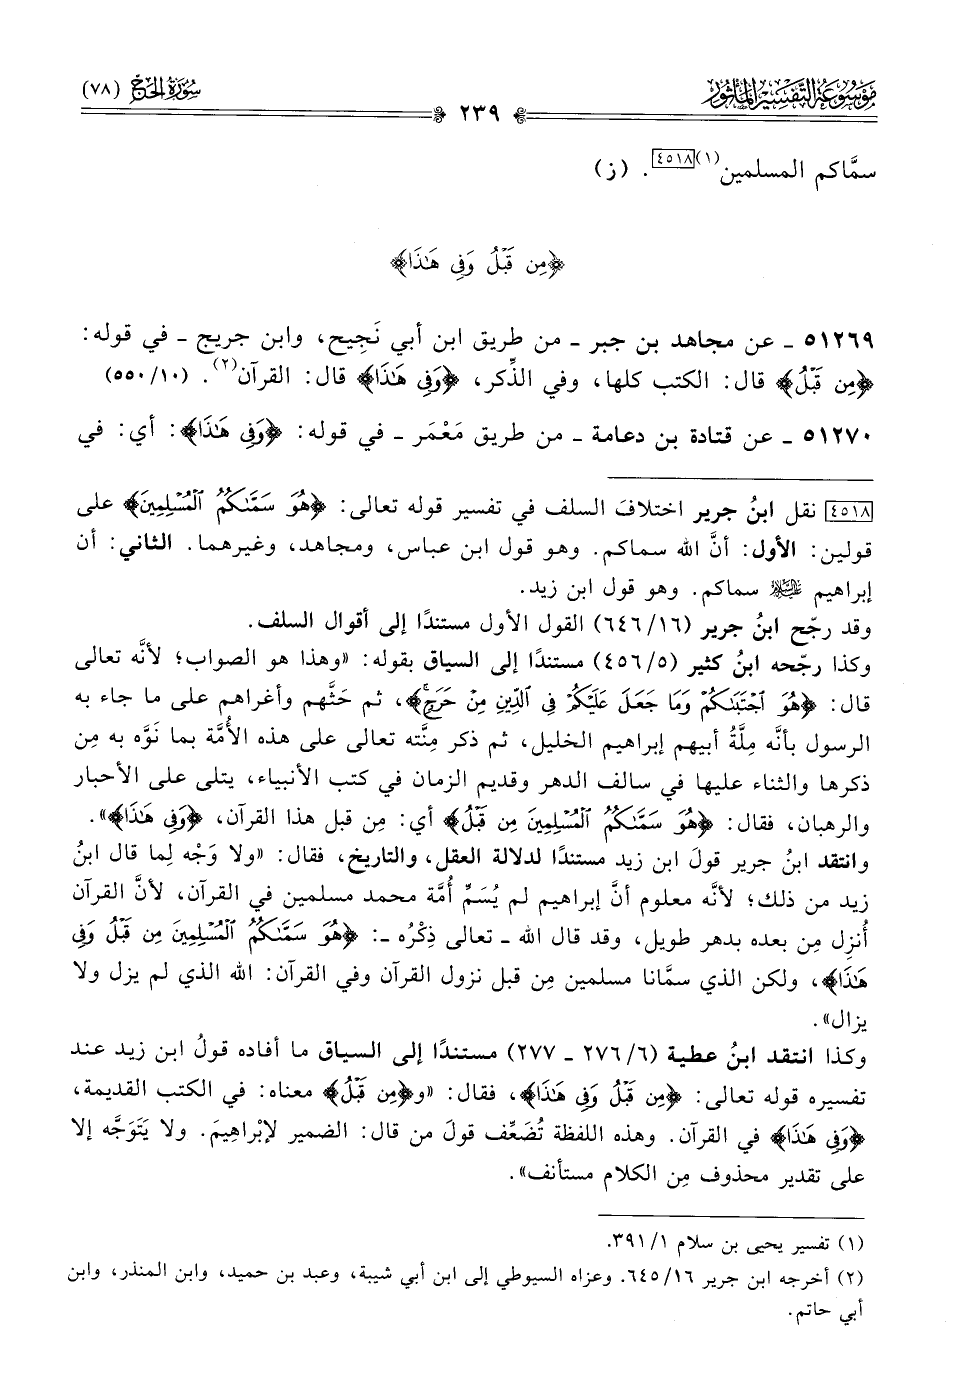 مَوْسُوعَة التَّفْسِير المَأثُور
سُورَةُ الحَجّ (٧٨)
٢٣٩
سمَّاكم المسلمين(١)[٤٥١٨]. (ز)
﴿مِن قَبْلُ وَفِي هَٰذَا﴾
٥١٢٦٩ ـ عن مجاهد بن جبر ـ من طريق ابن أبي نَجِيح، وابن جريج ـ في قوله:
﴿مِن قَبْلُ﴾ قال: الكتب كلها، وفي الذِّكر، ﴿وَفِي هَٰذَا﴾ قال: القرآن(٢). (١٠/ ٥٥٠)
٥١٢٧٠ ـ عن قتادة بن دعامة ـ من طريق مَعْمَر ـ في قوله: ﴿وَفِي هَٰذَا﴾: أي: في
[٤٥١٨] نقل ابنُ جرير اختلافَ السلف في تفسير قوله تعالى: ﴿هُوَ سَمَّىٰكُمُ ٱلْمُسْلِمِينَ﴾ على
قولين: الأول: أنَّ الله سماكم. وهو قول ابن عباس، ومجاهد، وغيرهما. الثاني: أن
إبراهيم عليه السلام سماكم. وهو قول ابن زيد.
وقد رجّح ابنُ جرير (١٦/ ٦٤٦) القول الأول مستندًا إلى أقوال السلف.
وكذا رجّحه ابنُ كثير (٥/ ٤٥٦) مستندًا إلى السياق بقوله: «وهذا هو الصواب؛ لأنَّه تعالى
قال: ﴿هُوَ ٱجْتَبَىٰكُمْ وَمَا جَعَلَ عَلَيْكُمْ فِي ٱلدِّينِ مِنْ حَرَجٍ﴾، ثم حَثَّهم وأغراهم على ما جاء به
الرسول بأنَّه مِلَّةُ أبيهم إبراهيم الخليل، ثم ذكر مِنَّته تعالى على هذه الأُمَّة بما نَوَّه به مِن
ذكرها والثناء عليها في سالف الدهر وقديم الزمان في كتب الأنبياء، يتلى على الأحبار
والرهبان، فقال: ﴿هُوَ سَمَّىٰكُمُ ٱلْمُسْلِمِينَ مِن قَبْلُ﴾ أي: مِن قبل هذا القرآن، ﴿وَفِي هَٰذَا﴾».
وانتقد ابنُ جرير قولَ ابن زيد مستندًا لدلالة العقل، والتاريخ، فقال: «ولا وَجْه لِما قال ابنُ
زيد من ذلك؛ لأنَّه معلوم أنَّ إبراهيم لم يُسَمِّ أُمَّة محمد مسلمين في القرآن، لأنَّ القرآن
أُنزِل مِن بعده بدهر طويل، وقد قال الله ـ تعالى ذِكْرُه ـ: ﴿هُوَ سَمَّىٰكُمُ ٱلْمُسْلِمِينَ مِن قَبْلُ وَفِي
هَٰذَا﴾، ولكن الذي سمَّانا مسلمين مِن قبل نزول القرآن وفي القرآن: الله الذي لم يزل ولا
يزال».
وكذا انتقد ابنُ عطية (٦/ ٢٧٦ ـ ٢٧٧) مستندًا إلى السياق ما أفاده قولُ ابن زيد عند
تفسيره قوله تعالى: ﴿مِن قَبْلُ وَفِي هَٰذَا﴾، فقال: «و﴿مِن قَبْلُ﴾ معناه: في الكتب القديمة،
﴿وَفِي هَٰذَا﴾ في القرآن. وهذه اللفظة تُضَعِّف قولَ من قال: الضمير لإبْراهِيمَ. ولا يَتَوَجَّه إلا
على تقدير محذوف مِن الكلام مستأنف».
(١) تفسير يحيى بن سلام ١/ ٣٩١.
(٢) أخرجه ابن جرير ١٦/ ٦٤٥. وعزاه السيوطي إلى ابن أبي شيبة، وعبد بن حميد، وابن المنذر، وابن
أبي حاتم.